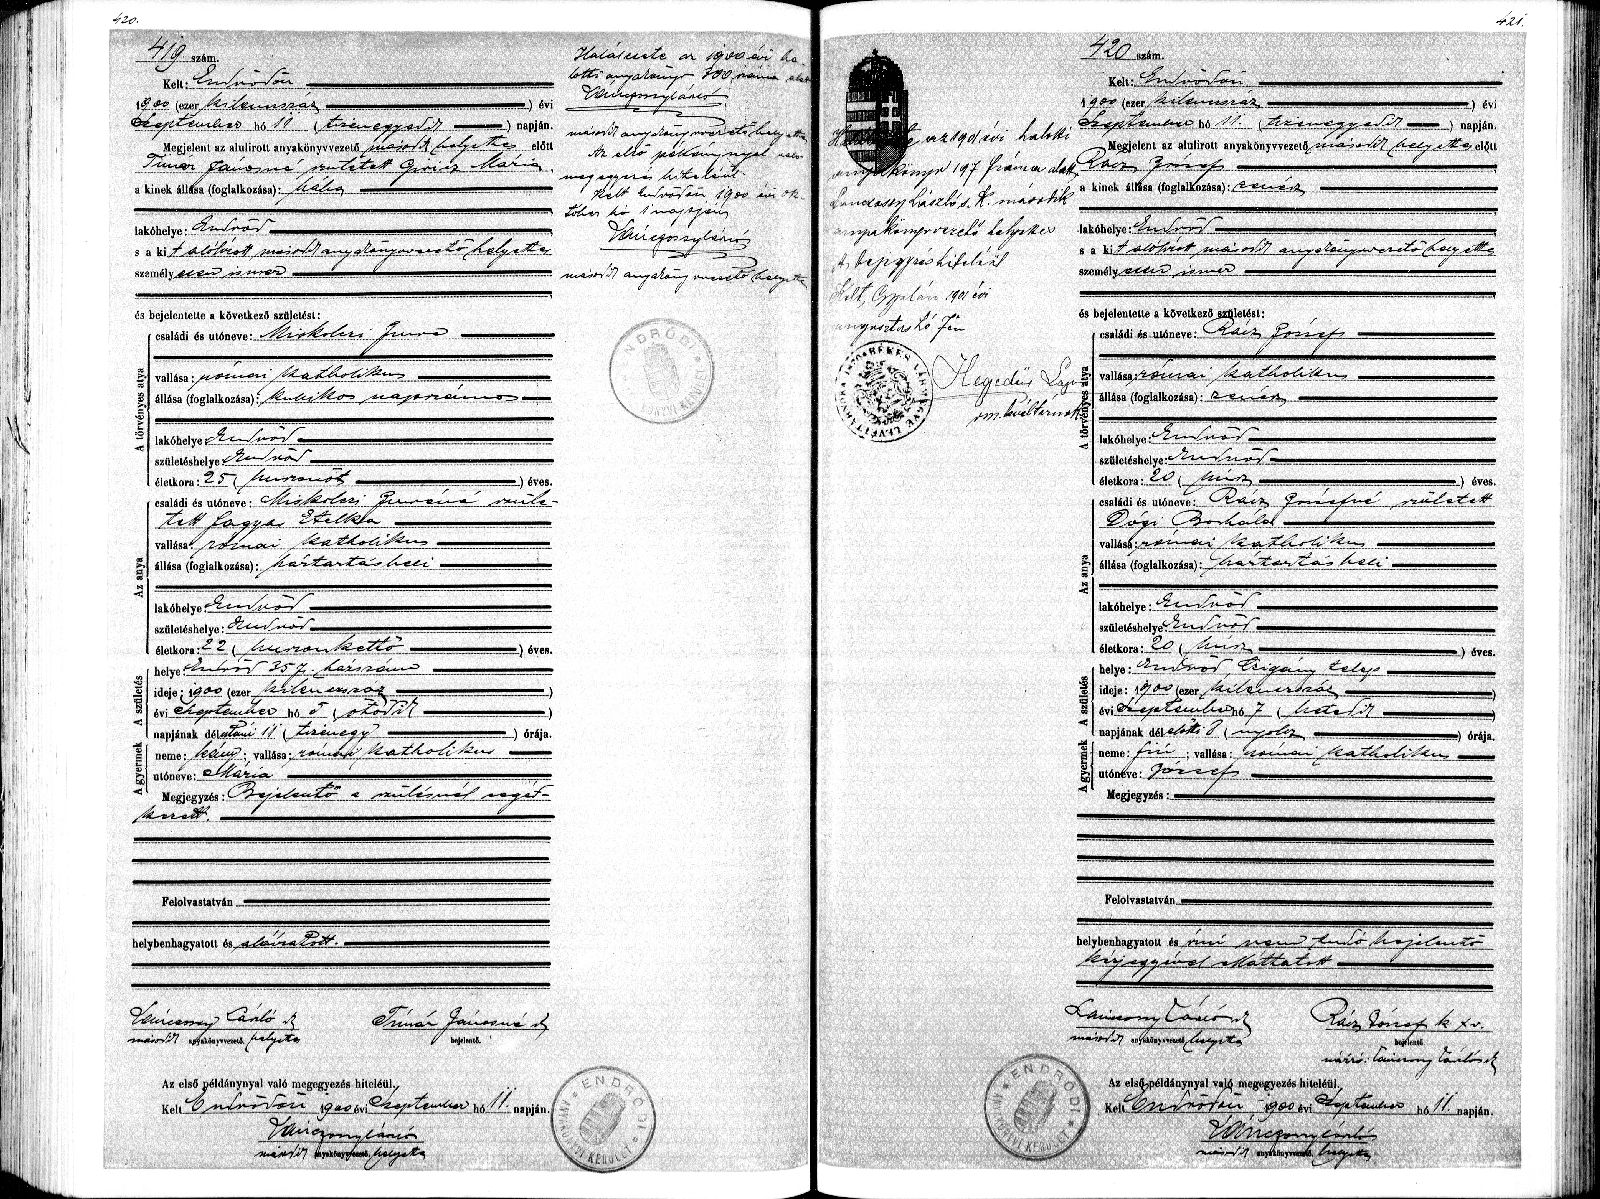 420.
419 szám.
Kelt: Endrődön
1900 (ezer kilencszáz) évi
Szeptember hó 11 (tizenegyedik) napján.
Megjelent az alulirott anyakönyvvezető másodk helyettes előtt
Timár Jánosné született Mária
a kinek állása (foglalkozása): bába
lakóhelye: Endrőd
s a kit alólirott másodk anyakönyvvezető helyettes
személyesen ismer
és bejelentette a következő születést:
A törvényes atya
családi és utóneve: Miskolczi Imre
vallása: római katholikus
állása (foglalkozása): kubikos napszámos
lakóhelye: Endrőd
születéshelye: Endrőd
életkora: 25 (huszonöt) éves.
Az anya
családi és utóneve: Miskolczi Imréné szüle-
tett Etelka
vallása: római katholikus
állása (foglalkozása): háztartásbeli
lakóhelye: Endrőd
születéshelye: Endrőd
életkora: 22 (huszonkettő) éves.
A születés
helye: Endrőd 357. házszám
ideje: 1900 (ezer kilenczszáz)
évi Szeptember hó 5 (ötödik)
napjának délutáni 11 (tizenegy) órája.
A gyermek
neme: leány; vallása: római katholikus
utóneve: Mária
Megjegyzés: Bejelentő a szülésnél segéd-
kezett.
Felolvastatván
helybenhagyatott és aláiratott.
László sk
másodk anyakönyvvezető helyettes
Timár Jánosné sk
bejelentő.
Az első példánynyal való megegyezés hiteléül.
Kelt Endrődön 1900 évi Szeptember hó 11. napján.
másodk anyakönyvvezető helyettes
ENDRŐDI ANYAKÖNYVI KERÜLET
Halálesete az 1900 évi ha-
lotti anyakönyv 300 száma alatt
másodk anyakönyvvezető helyettes
Az első példánynyal való
megegyezés hiteléül.
Kelt Endrődön, 1900 évi ok-
tóber hó 1 napján
másodk anyakönyvvezető helyettes
ENDRŐDI ANYAKÖNYVI KERÜLET
421.
az 1901 évi halotti
anyakönyv 197 száma alatt
László s. k. második
anyakönyvvezető helyettes
A bejegyzés hiteléül
Kelt, Gyulán 1901 évi
augusztus hó 7én
Hegedűs
vm. levéltárnok
BÉKÉS VÁRMEGYE LEVÉLTÁRNOKA
420 szám.
Kelt: Endrődön
1900 (ezer kilenczszáz) évi
Szeptember hó 11. (tizenegyedik) napján.
Megjelent az alulirott anyakönyvvezető másodk helyettes előtt
Rácz József
a kinek állása (foglalkozása): zenész
lakóhelye: Endrőd
s a kit alólirott másodk anyakönyvvezető helyettes
személyesen ismer
és bejelentette a következő születést:
A törvényes atya
családi és utóneve: Rácz József
vallása: római katholikus
állása (foglalkozása): zenész
lakóhelye: Endrőd
születéshelye: Endrőd
életkora: 20 (húsz) éves.
Az anya
családi és utóneve: Rácz Józsefné született
Dógi Borbála
vallása: római katholikus
állása (foglalkozása): háztartásbeli
lakóhelye: Endrőd
születéshelye: Endrőd
életkora: 20 (húsz) éves.
A születés
helye: Endrőd Czigány telep
ideje: 1900 (ezer kilenczszáz)
évi Szeptember hó 7 (hetedik)
napjának délelőtti 8 (nyolcz) órája.
A gyermek
neme: fiú; vallása: római katholikus
utóneve: József
Megjegyzés:
Felolvastatván
helybenhagyatott és irni nem tudó bejelentő
kézjegyével elláttatott
László sk
másodk anyakönyvvezető helyettes
Rácz József k x v.
bejelentő
László sk
Az első példánynyal való megegyezés hiteléül.
Kelt Endrődön 1900 évi Szeptember hó 11. napján.
másodk anyakönyvvezető helyettes
ENDRŐDI ANYAKÖNYVI KERÜLET